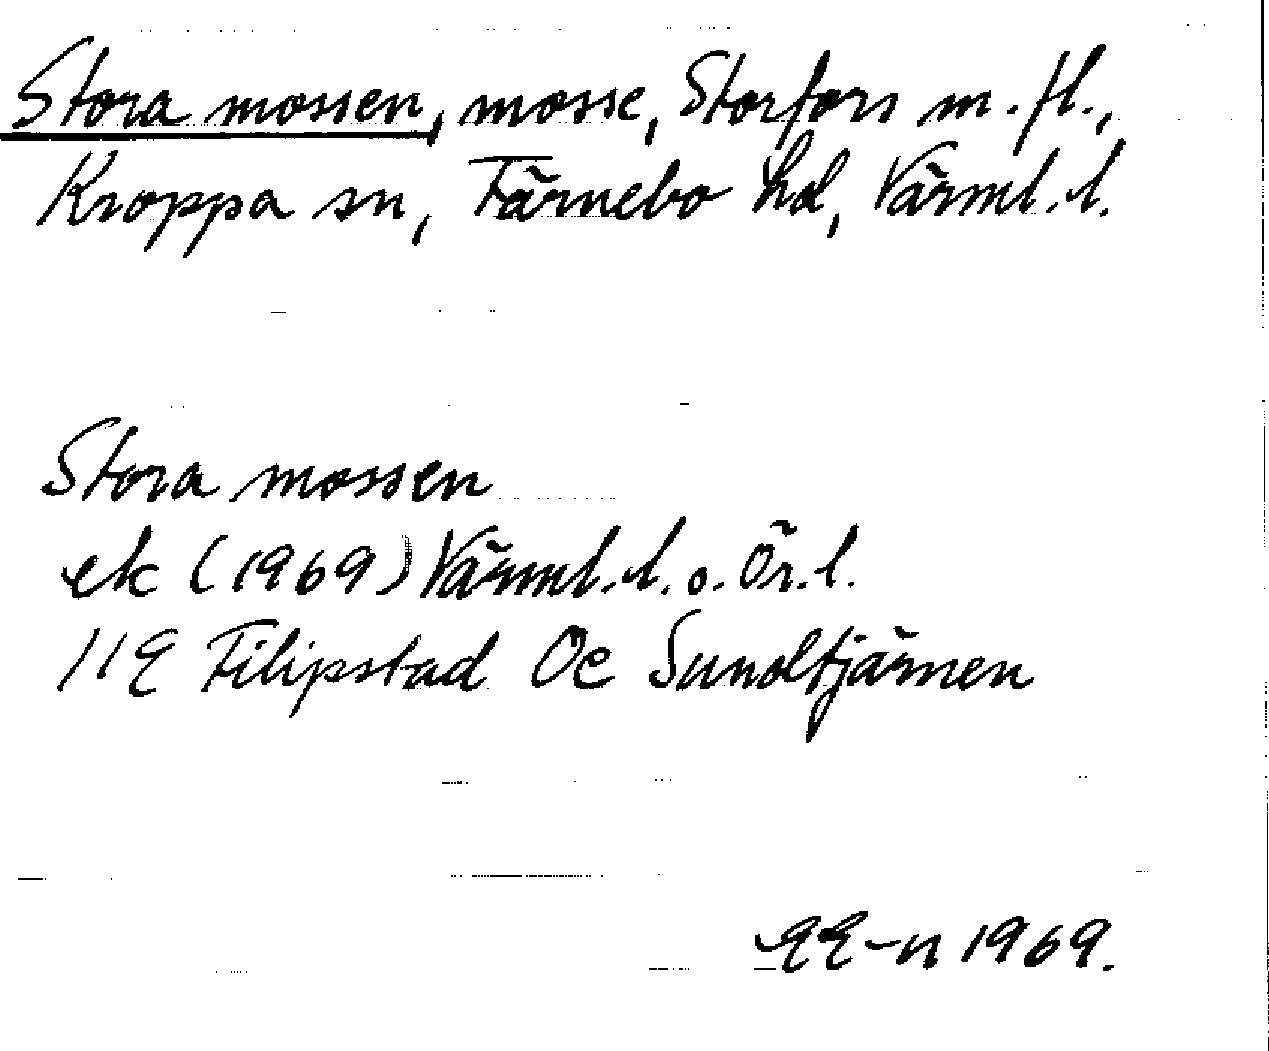 Stora mossen, mosse, Storfors m. fl.,
Kroppa sn, Färnebo hd, Värml. l.
Stora mossen
ek (1969) Värml. l. o. Ör. l.
11E Filipstad Oe Sundtjärnen
EE-n 1969.